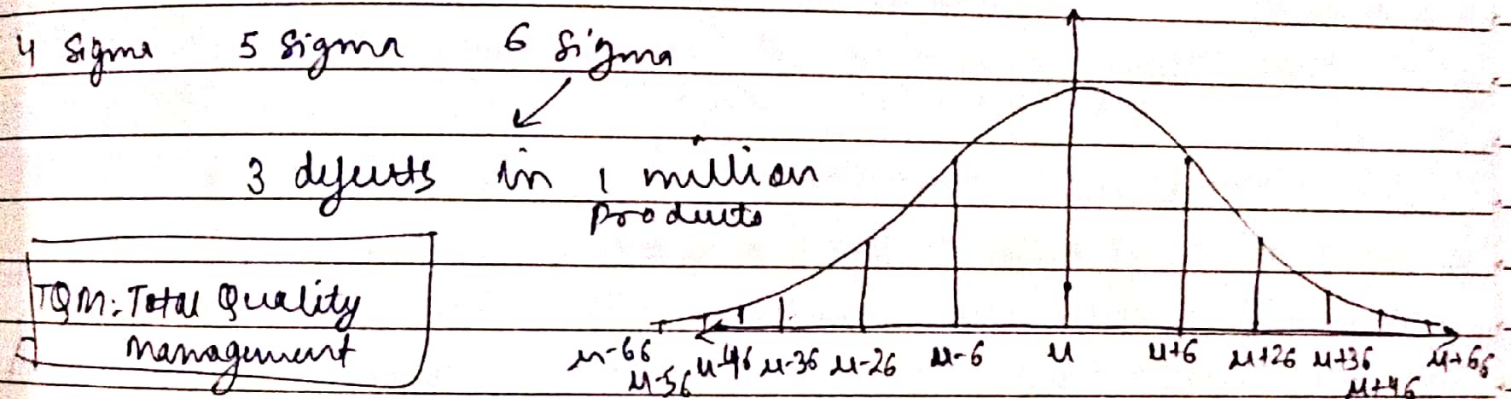 4 Sigma 5 Sigma 6 Sigma
3 defects in 1 million
products
TQM: Total Quality
Management
μ-6σ μ-5σ μ-4σ μ-3σ μ-2σ μ-σ μ μ+σ μ+2σ μ+3σ μ+4σ μ+6σ